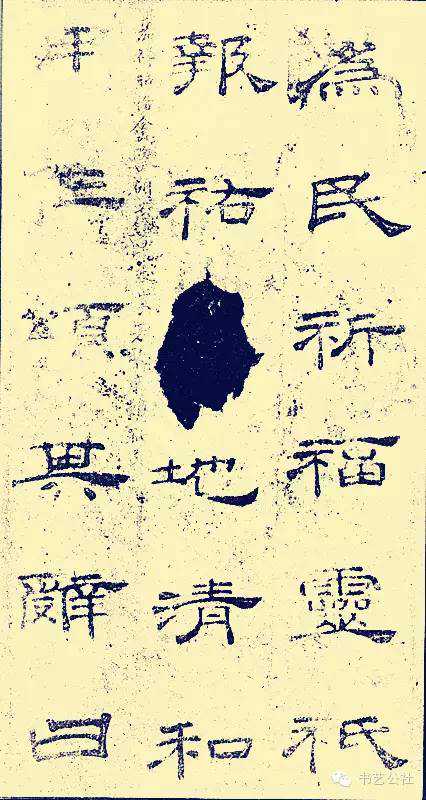 為民祈福靈祇
報祐地清和
三頌其辭曰
书艺公社